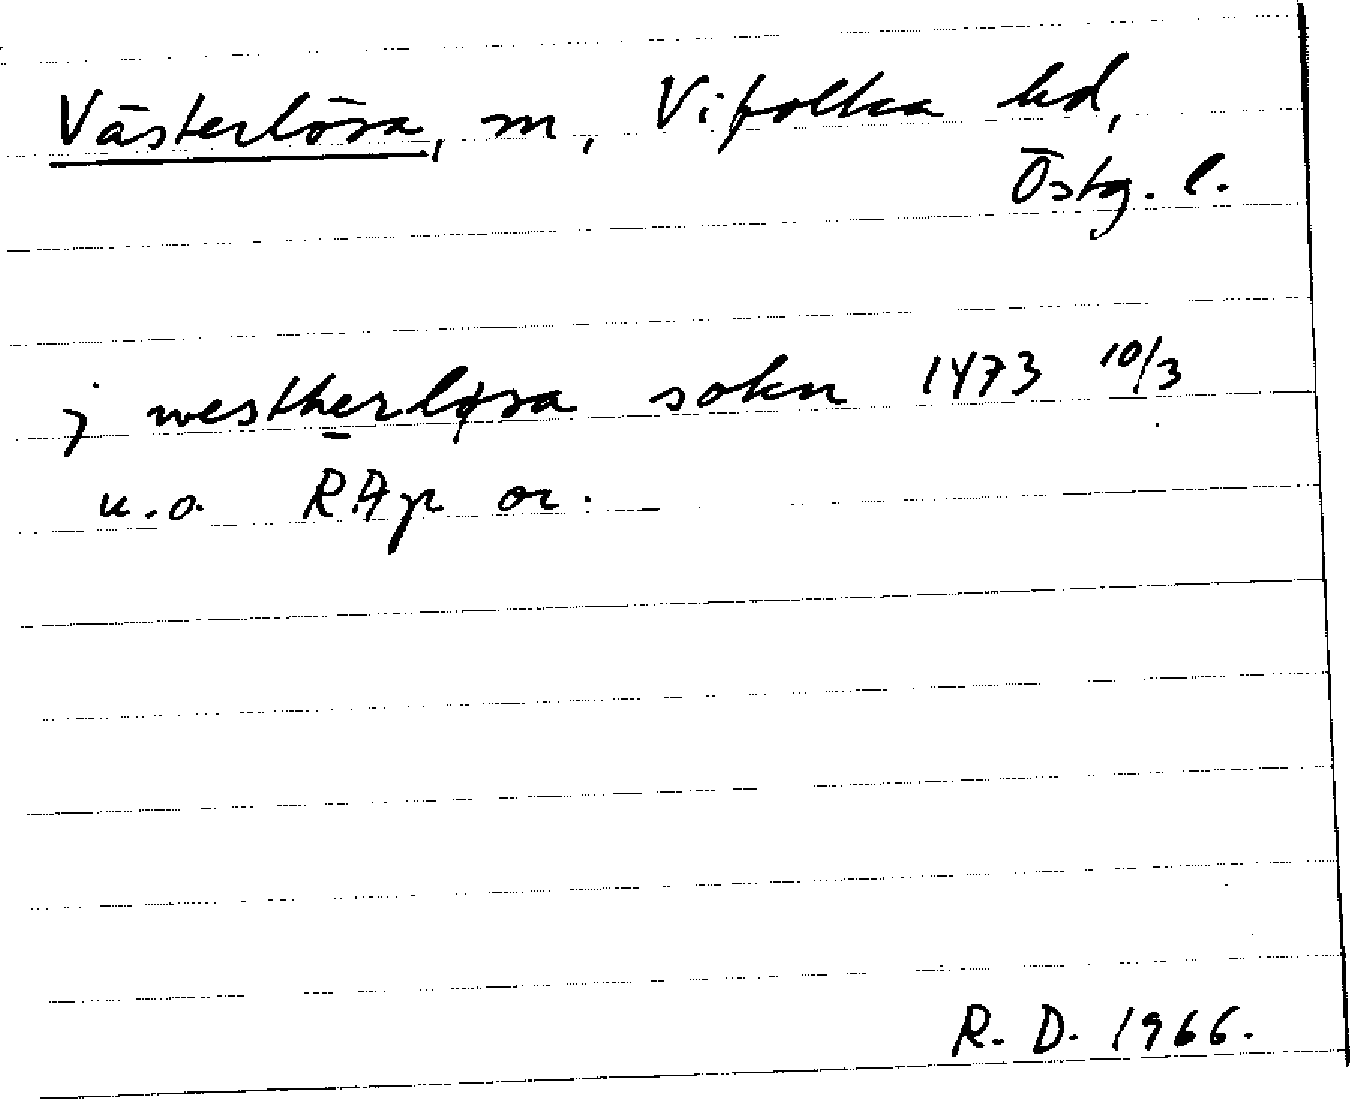 Västerlösa, sn, Vifolka hd,
Östg. l.
j westherløsa sokn 1473 10/3
u.o. RAp or.
R. D. 1966.